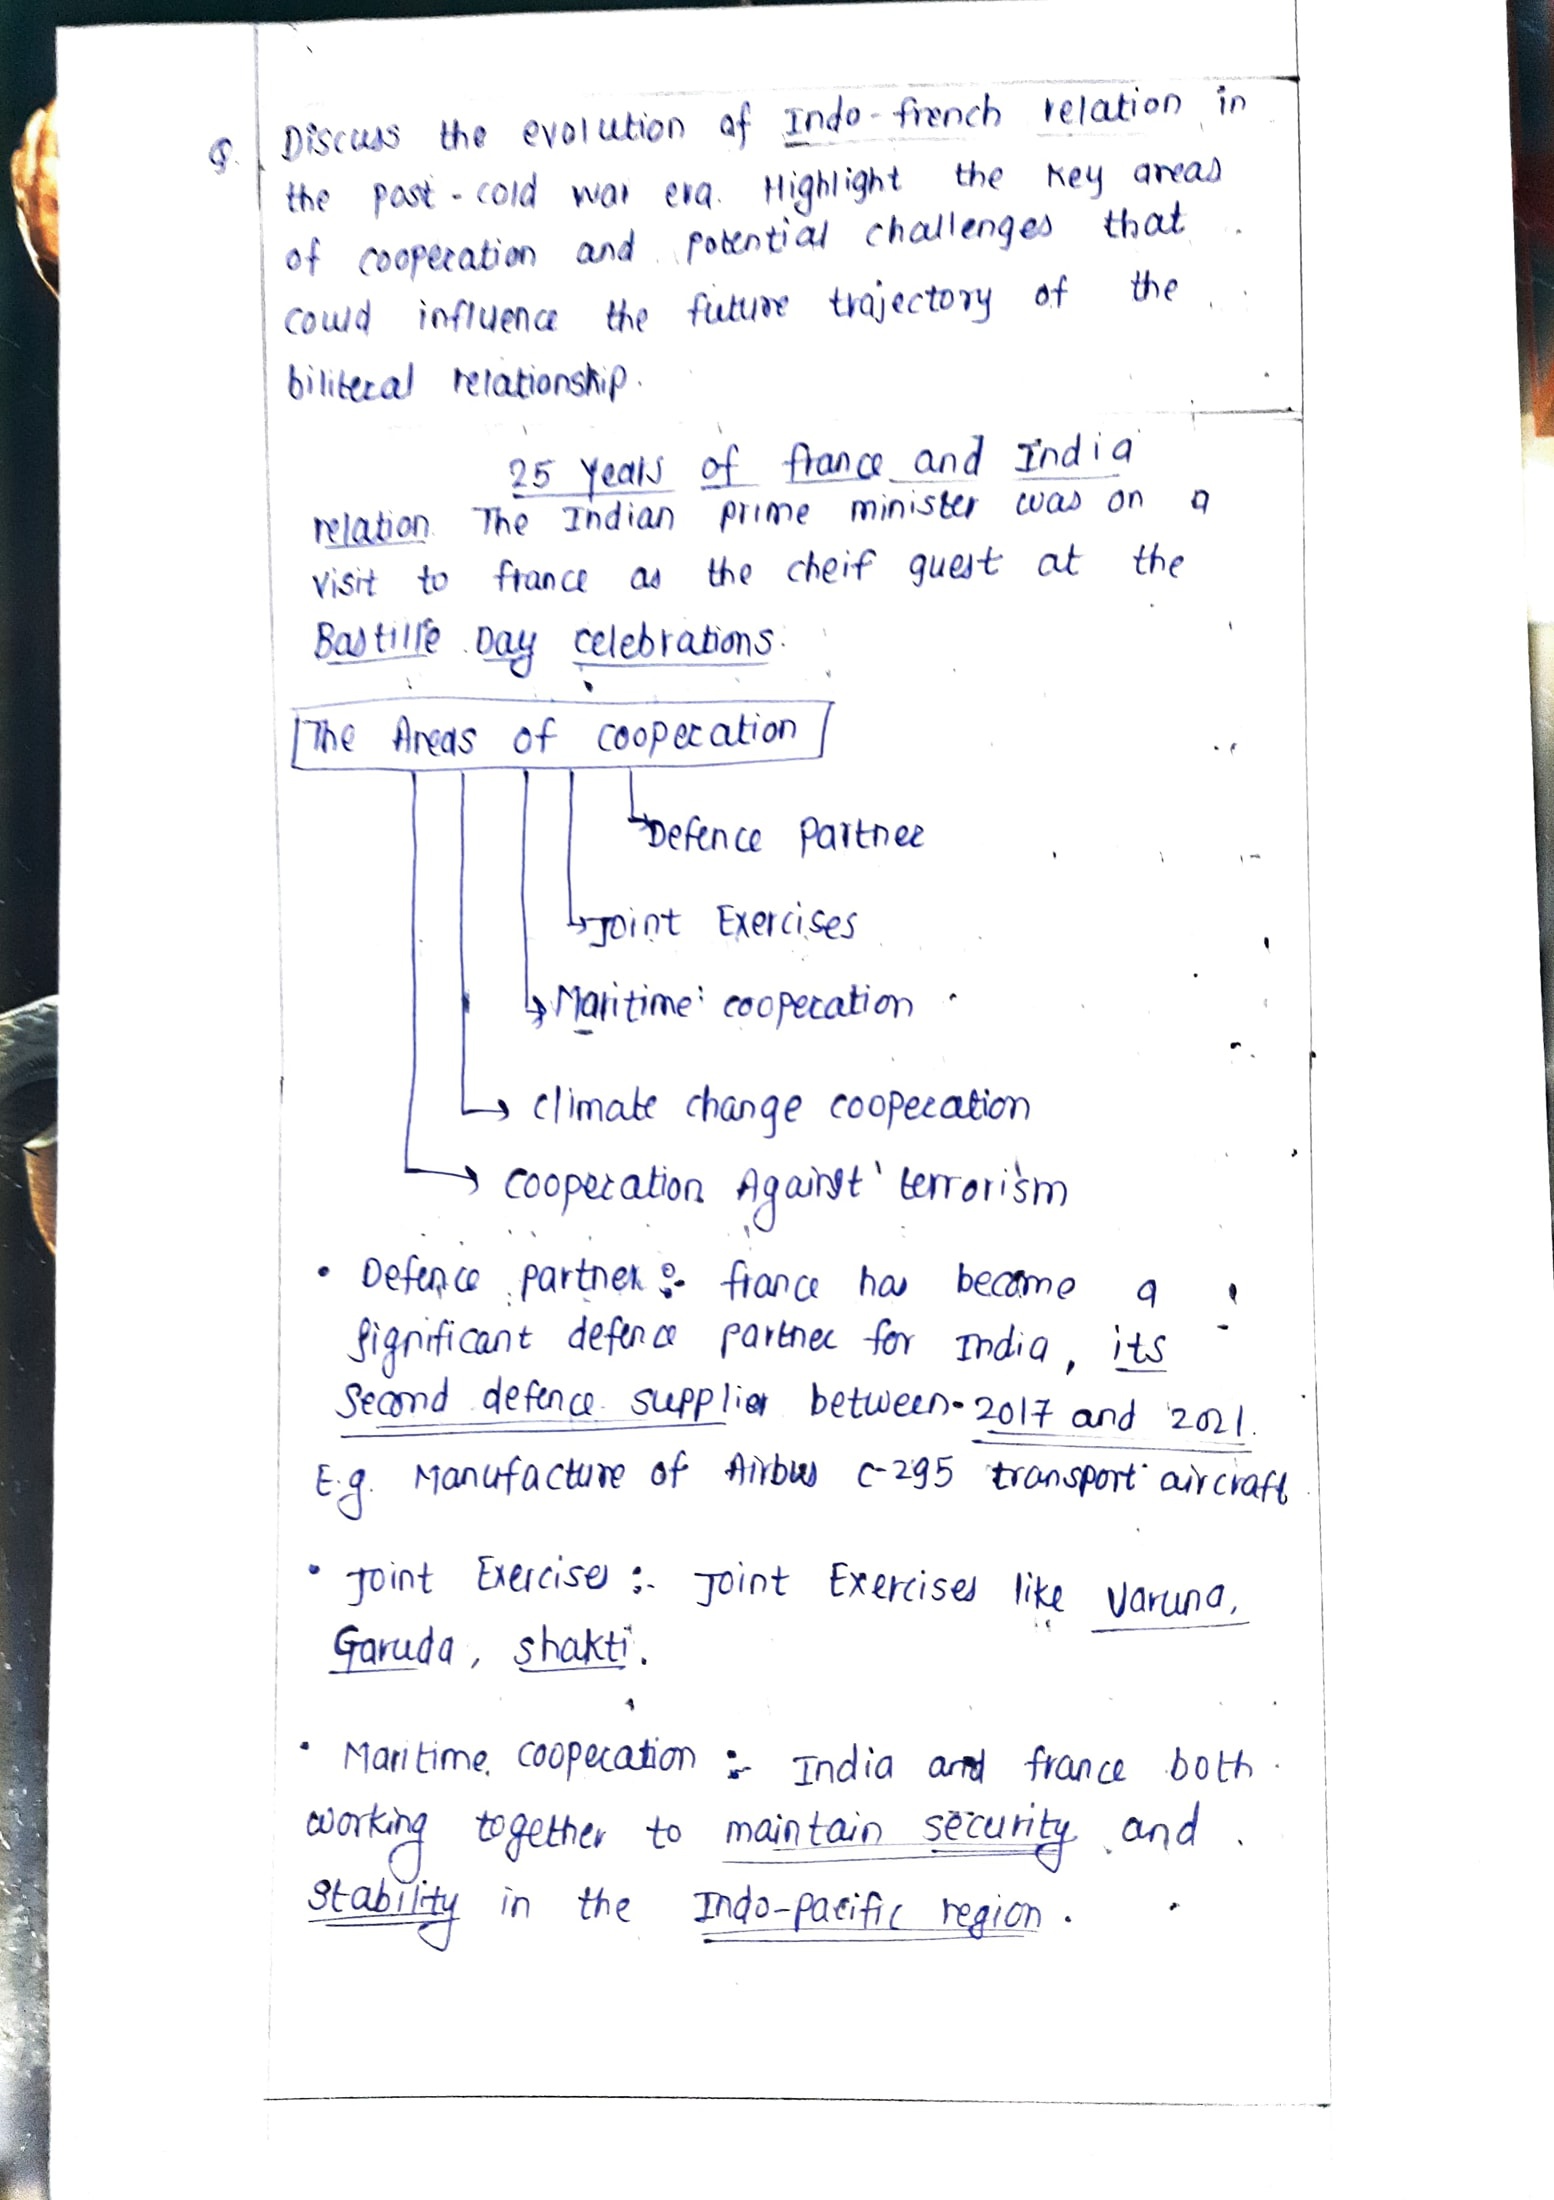 Q. Discuss the evolution of Indo-french relation in
the post-cold war era. Highlight the key areas
of cooperation and potential challenges that
could influence the future trajectory of the
biliteral relationship.
25 years of france and India
relation. The Indian prime minister was on a
visit to france as the cheif guest at the
Bastille Day celebrations.
The Areas of cooperation
Defence Partner
Joint Exercises
Maritime cooperation
climate change cooperation
cooperation Against terrorism
• Defence partner :- france has become a
significant defence partner for India, its
second defence supplier between 2017 and 2021.
E.g. Manufacture of Airbus C-295 transport aircraft
• Joint Exercises :- Joint Exercises like Varuna,
Garuda, shakti.
• Maritime cooperation :- India and france both
working together to maintain security and
stability in the Indo-pacific region.